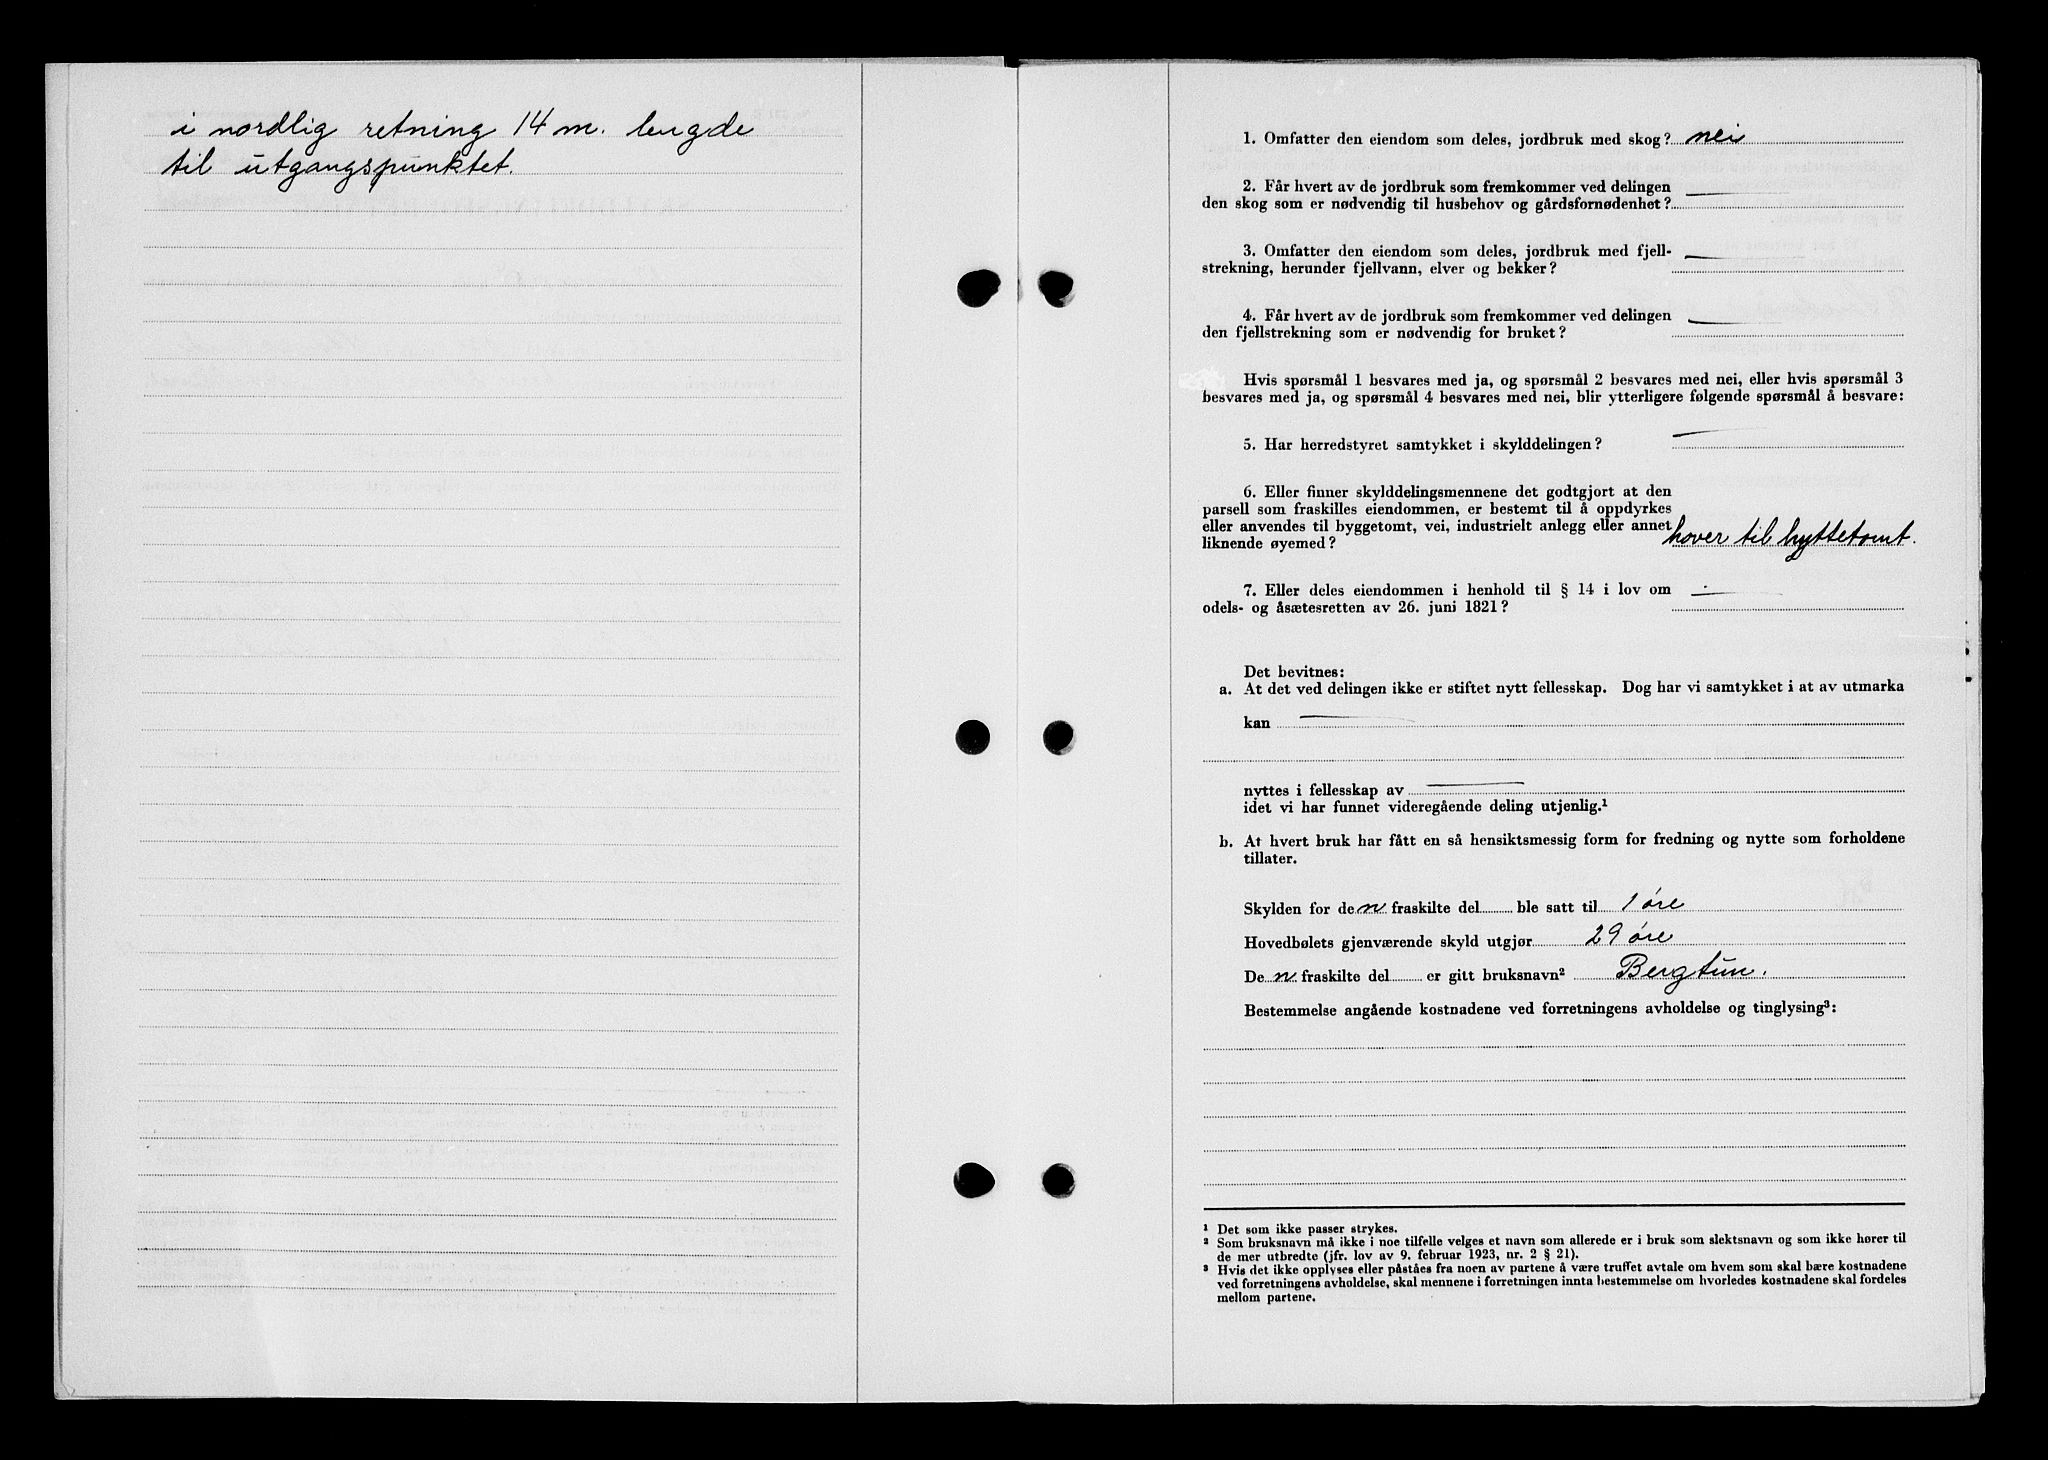 i nordlig retning 14 m. lengde
til utgangspunktet.
1. Omfatter den eiendom som deles, jordbruk med skog? nei
2. Får hvert av de jordbruk som fremkommer ved delingen
den skog som er nødvendig til husbehov og gårdsfornødenhet?
3. Omfatter den eiendom som deles, jordbruk med fjell-
strekning, herunder fjellvann, elver og bekker?
4. Får hvert av de jordbruk som fremkommer ved delingen
den fjellstrekning som er nødvendig for bruket?
Hvis spørsmål 1 besvares med ja, og spørsmål 2 besvares med nei, eller hvis spørsmål 3
besvares med ja, og spørsmål 4 besvares med nei, blir ytterligere følgende spørsmål å besvare:
5. Har herredstyret samtykket i skylddelingen?
6. Eller finner skylddelingsmennene det godtgjort at den
parsell som fraskilles eiendommen, er bestemt til å oppdyrkes
eller anvendes til byggetomt, vei, industrielt anlegg eller annet
liknende øyemed? høver til hyttetomt.
7. Eller deles eiendommen i henhold til § 14 i lov om
odels- og åsætesretten av 26. juni 1821?
Det bevitnes:
a. At det ved delingen ikke er stiftet nytt fellesskap. Dog har vi samtykket i at av utmarka
kan
nyttes i fellesskap av
idet vi har funnet videregående deling utjenlig.¹
b. At hvert bruk har fått en så hensiktsmessig form for fredning og nytte som forholdene
tillater.
Skylden for den fraskilte del ble satt til 1 øre
Hovedbølets gjenværende skyld utgjør 29 øre
Den fraskilte del er gitt bruksnavn² Bergtun.
Bestemmelse angående kostnadene ved forretningens avholdelse og tinglysing³:
¹ Det som ikke passer strykes.
² Som bruksnavn må ikke i noe tilfelle velges et navn som allerede er i bruk som slektsnavn og som ikke hører til
de mer utbredte (jfr. lov av 9. februar 1923, nr. 2 § 21).
³ Hvis det ikke opplyses eller påståes fra noen av partene å være truffet avtale om hvem som skal bære kostnadene
ved forretningens avholdelse, skal mennene i forretningen innta bestemmelse om hvorledes kostnadene skal fordeles
mellom partene.